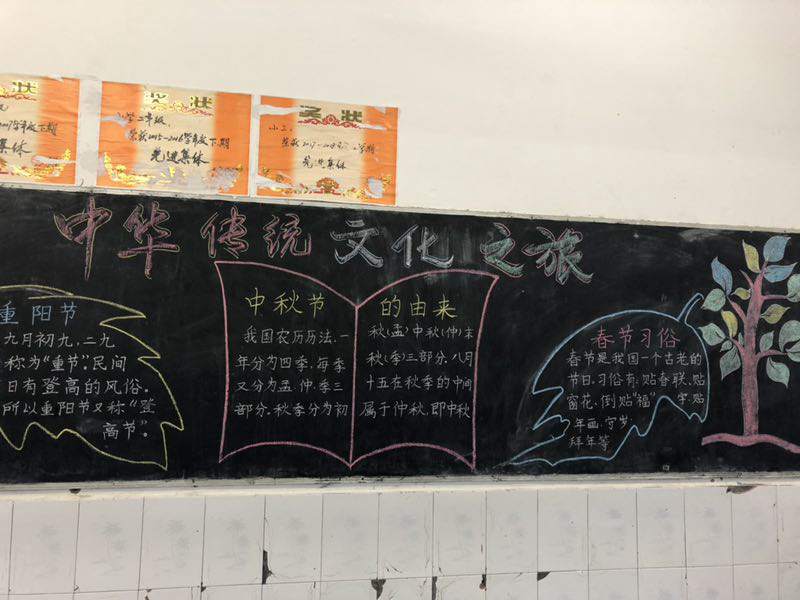 状
2017学年度下期
集体
奖状
小学二年级:
荣获2015-2016学年度下期
先进集体
奖状
小三:
荣获2017-2018 学期
先进集体
中华传统文化之旅
重阳节
九月初九,二九
称为“重节”,民间
日有登高的风俗。
所以重阳节又称“登
高节”。
中秋节
我国农历历法,一
年分为四季,每季
又分为孟、仲、季三
部分,秋季分为初
的由来
秋(孟)中秋(仲)末
秋(季)三部分,八月
十五在秋季的中间
属于仲秋,即中秋
春节习俗
春节是我国一个古老的
节日,习俗有:贴春联、贴
窗花、倒贴“福”字、贴
年画、守岁、
拜年等